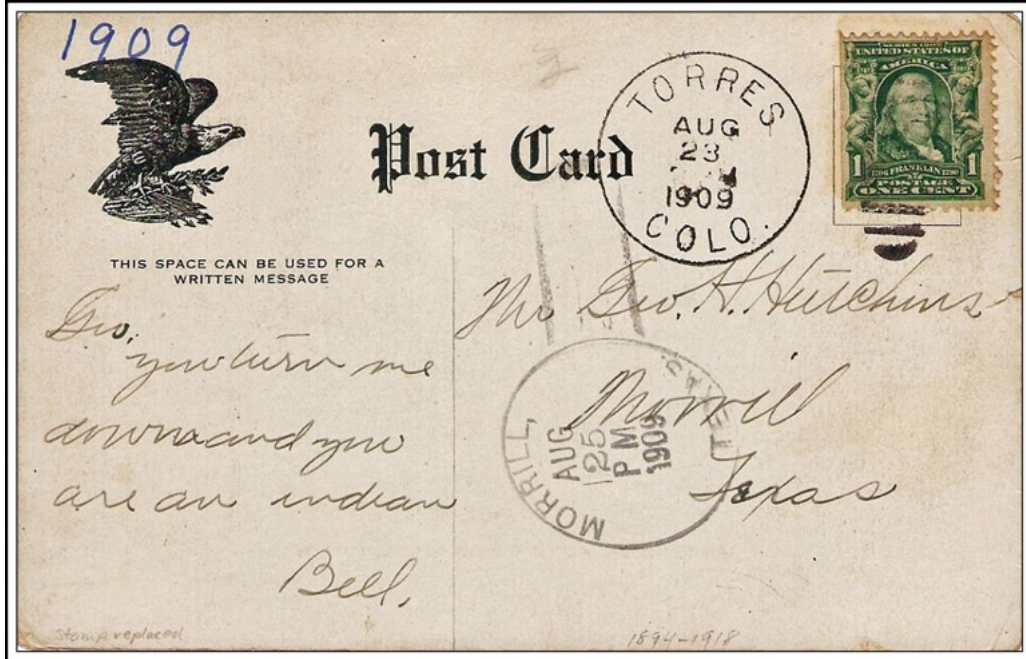 1909
Post Card
TORRES
AUG
23
1909
COLO.
SERIES 1902
UNITED STATES OF
AMERICA
1 1706 FRANKLIN 1790 1
POSTAGE
ONE CENT
THIS SPACE CAN BE USED FOR A
WRITTEN MESSAGE
Geo,
you turn me
down and you
are an indian
Bell,
Mr Geo. H. Hutchins
Morrill
Texas
MORRILL, TEXAS
AUG
25
P M
1909
Stamp replaced
1894-1918